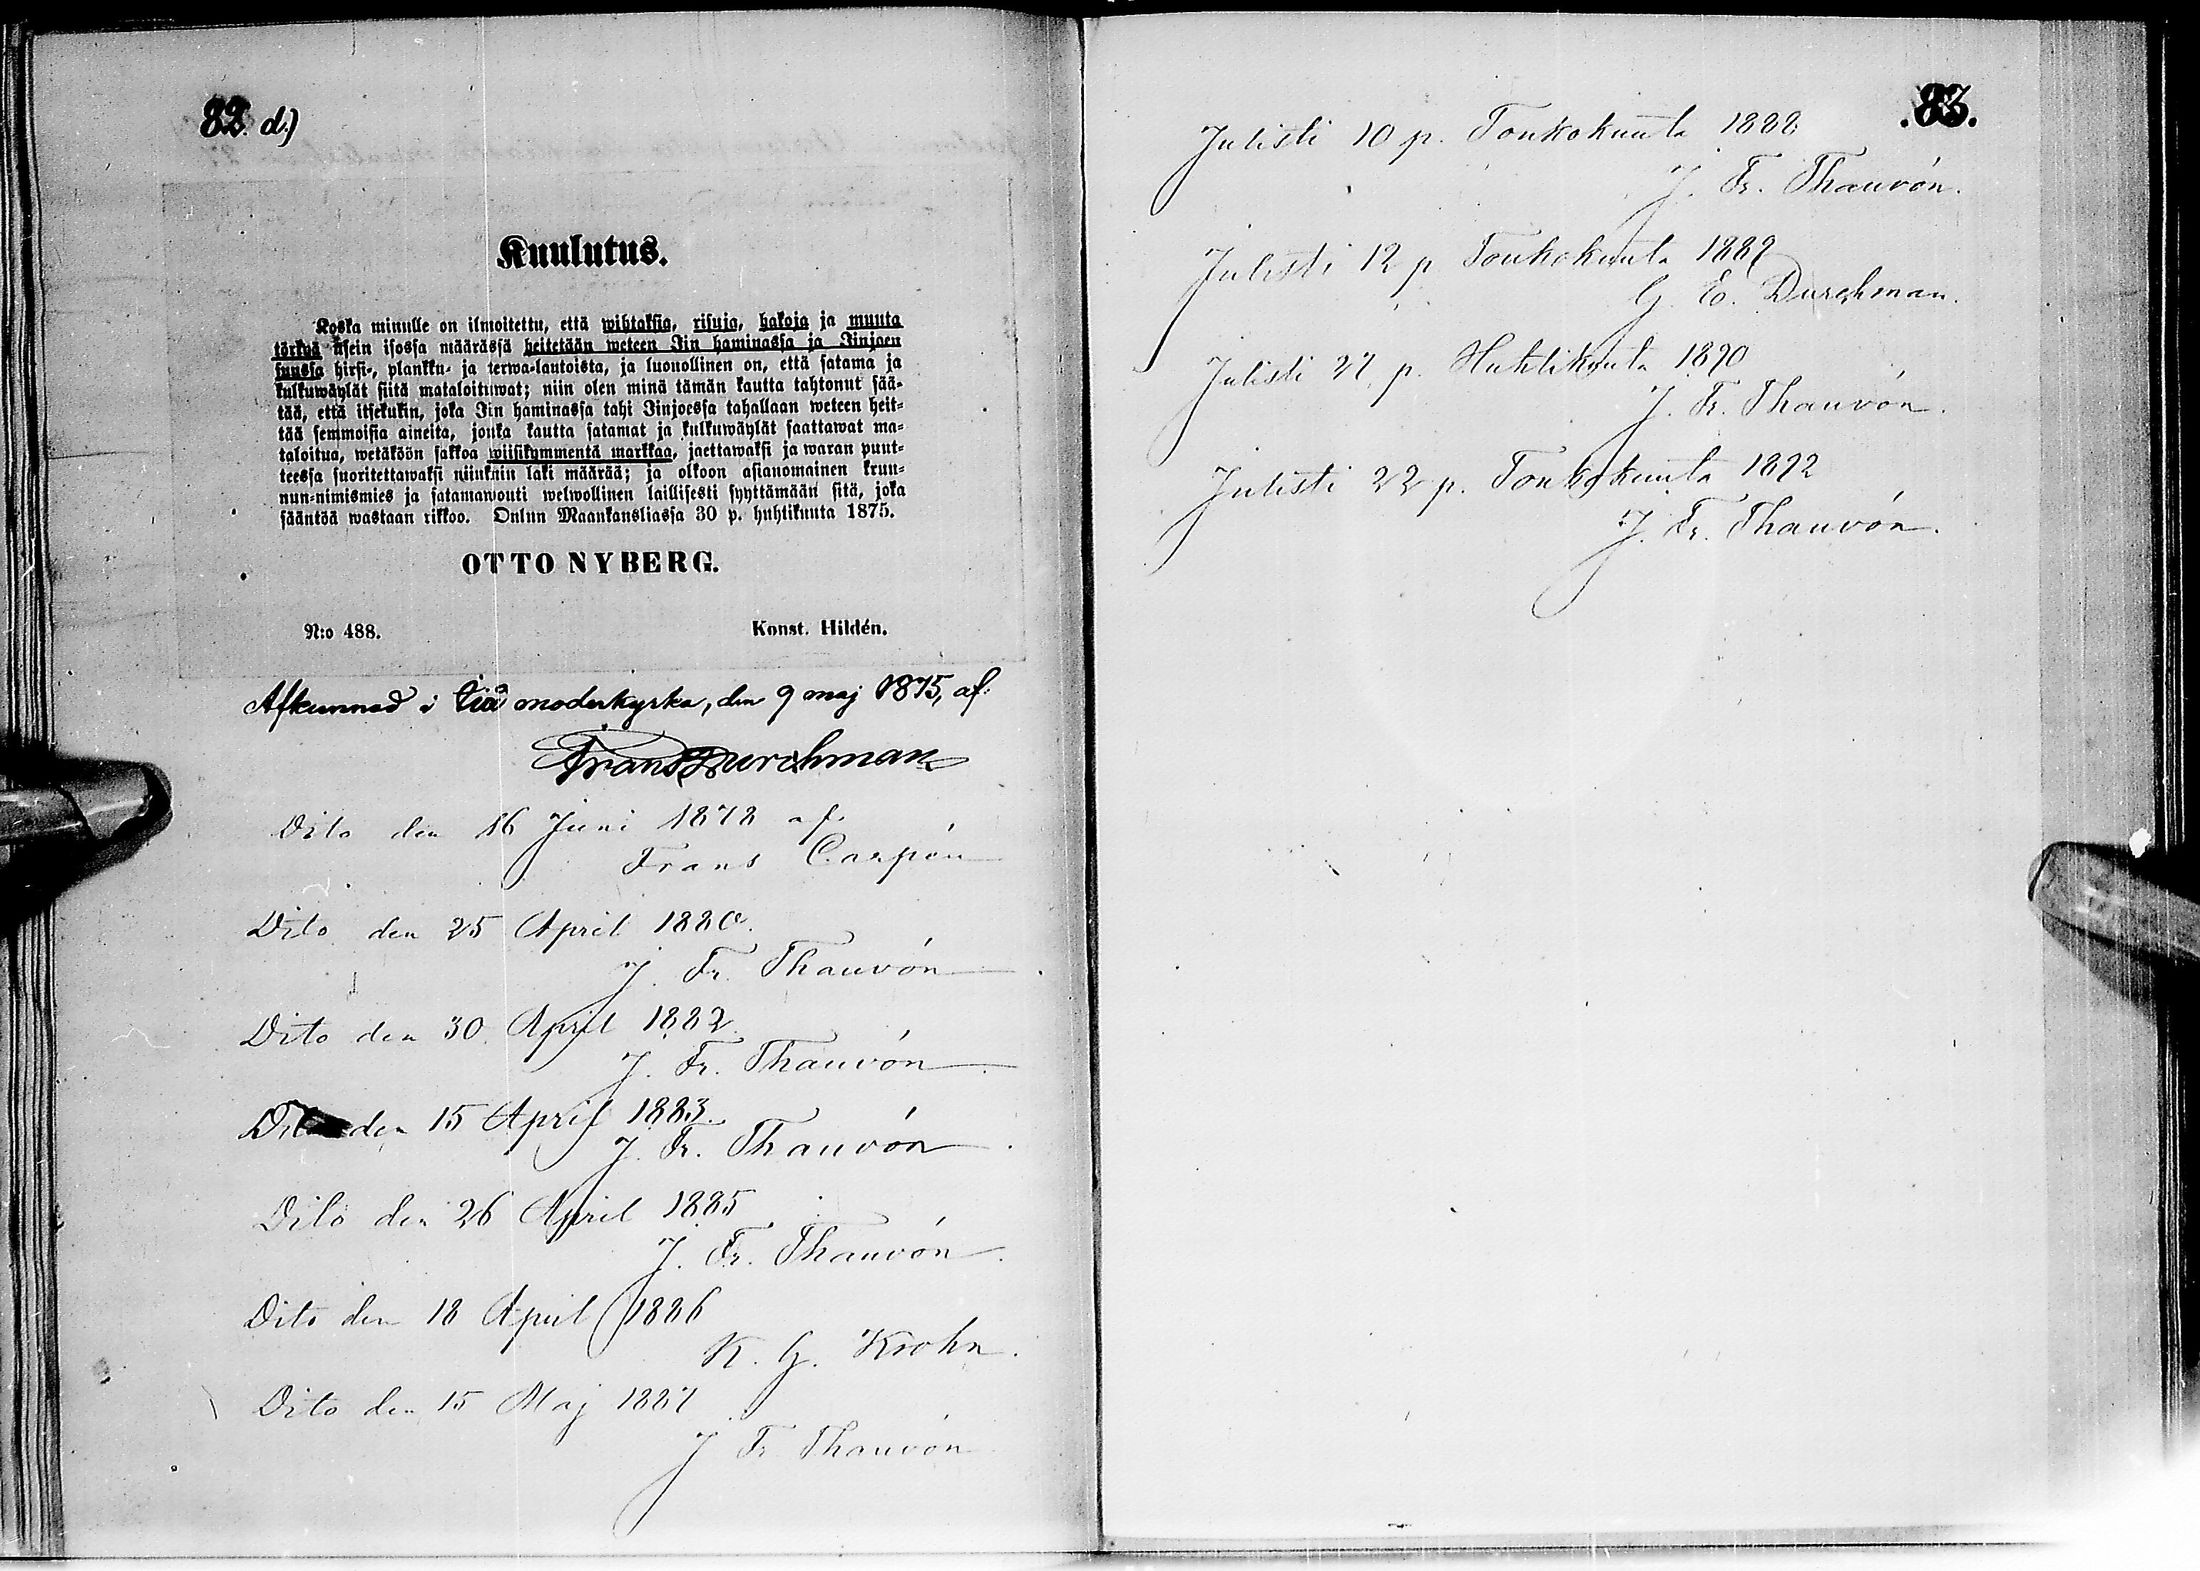 82. d.)
Kuulutus.
Koska minulle on ilmoitettu, että wihtaksia, risuja, hakoja ja muuta
törkyä usein isossa määrässä heitetään weteen Iin haminassa ja Iinjoen
suussa hirsi-, plankku- ja terwa-lautoista, ja luonollinen on, että satama ja
kulkuwäylät siitä mataloituwat; niin olen minä tämän kautta tahtonut sää-
tää, että itsekukin, joka Iin haminassa tahi Iinjoessa tahallaan weteen heit-
tää semmoisia aineita, jonka kautta satamat ja kulkuwäylät saattawat ma-
taloitua, wetäköön sakkoa wiisikymmentä markkaa, jaettawaksi ja waran puut-
teessa suoritettawaksi niinknin laki määrää; ja olkoon asianomainen kruu-
nun-nimismies ja satamawouti welwollinen laillisesti syyttämään sitä, joka
sääntöä wastaan rikkoo. Onlun Maankansliassa 30 p. huhtikuuta 1875.
OTTO NYBERG.
N:o 488. Konst. Hildén.
Afkunnad i Iiå moderkyrka, den 9 maj 1875, af:
Frans Durchman
Dito den 16 Juni 1878 af.
Frans Carpén
Dito den 25 April 1880.
J. Fr. Thauvón
Dito den 30 April 1882.
J. Fr. Thauvón
Dito den 15 April 1883.
J. Fr. Thauvón
Dito den 26 April 1885
J. Fr. Thauvón.
Dito den 18 April 1886
K. G. Krohn.
Dito den 15 Maj 1887
J Fr Thauvón
83.
Julisti 10 p. Toukokuuta 1888
J. Fr. Thauvón.
Julisti 12 p Toukokuuta 1889
G. E. Durchman.
Julisti 27 p. Huhtikuuta 1890
J. Fr. Thauvón.
Julisti 22 p. Toukokuuta 1892
J. Fr. Thauvón.